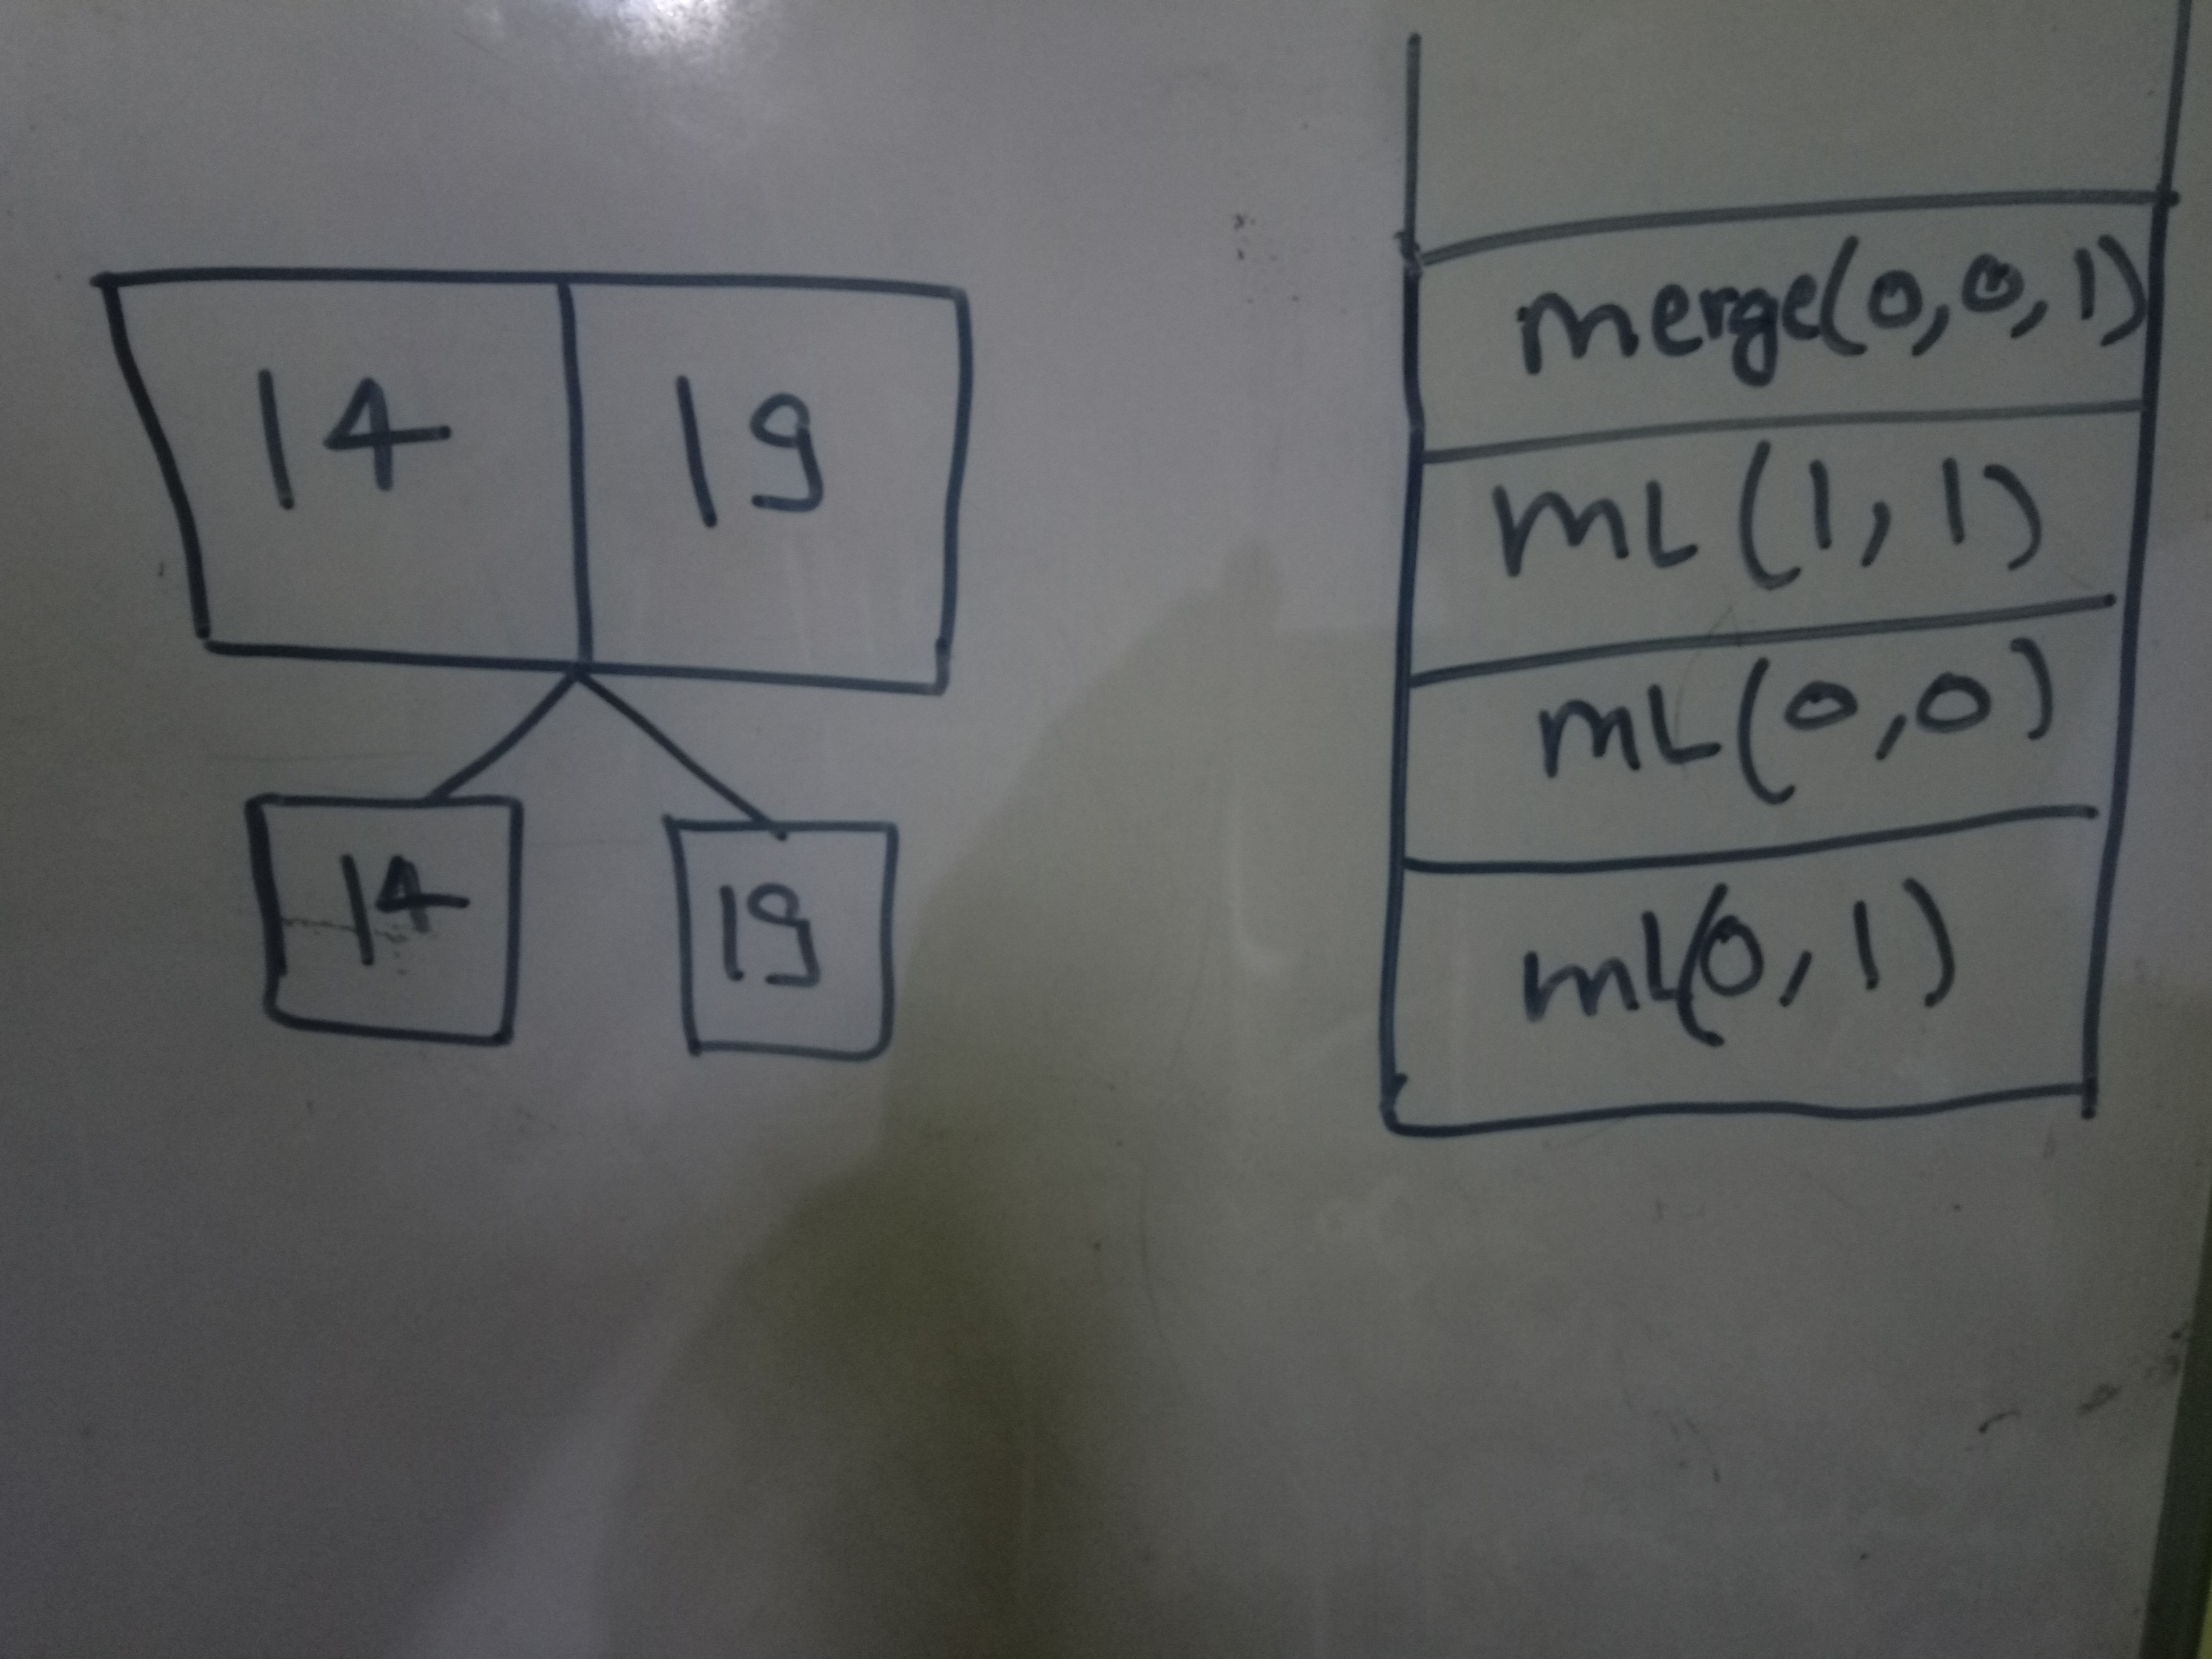 14 19
14 19
merge(0,0,1)
mL(1,1)
mL(0,0)
mL(0,1)